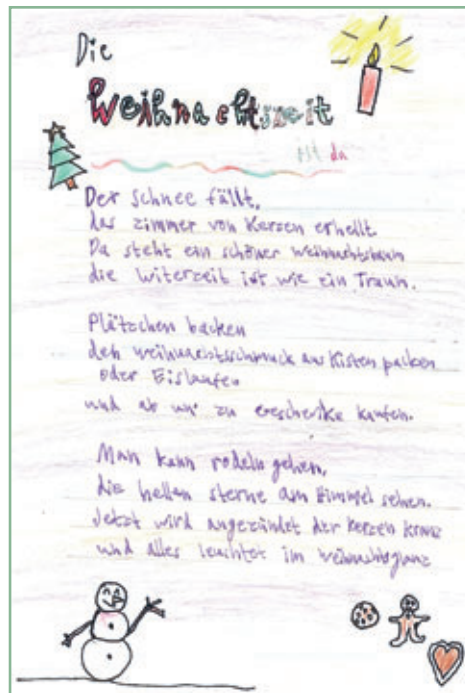 Die
Weihnachtszeit
ist da
Der Schnee fällt,
das zimmer von Kerzen erhellt
Da steht ein schöner weihnachtsbaum
die Witerzeit ist wie ein Traum.
Plätzchen backen
den weihnachtsschmuck aus Kisten packen
oder Eislaufen
und ab un zu kaufen.
Man kann rodeln gehen,
die hellen sterne am Himmel sehen.
Jetzt wird angezündet der Kerzen Kranz
und alles leuchtet im weihnachtsglanz